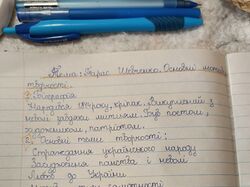 Тема: Тарас Шевченко. Основні
творчості.
Біографія
Народився
неволі завдяки митцям. Був поетом,
художником, патріотом.
2. Основні теми творчості:
Страждання українського народу
Засудження панства і неволі
Любов до України